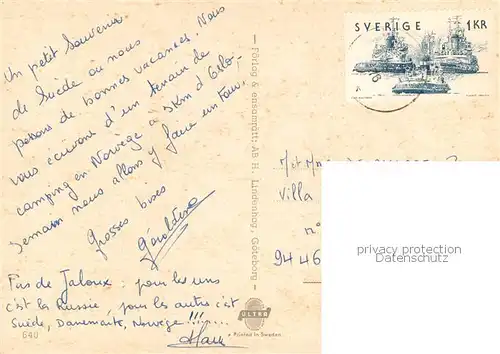 Un petit Souvenir
de Suède où nous
passons de bonnes vacances. Nous
vous écrivons d'un terrain de
camping en Norvège à 5km d'Oslo.
Demain nous allons y faire un tour.
Grosses bises
Géraldine
Pas de Jaloux : pour les uns
c'est la Russie, pour les autres c'est
Suède, Danemark, Norvège !!!
640
Förlag & ensamrätt: AB H. Lindenhag, Göteborg
ULTRA
Printed in Sweden
SVERIGE 1KR
M/et Mme
Villa
n°
9446
privacy protection
ansichtskarten-center.de